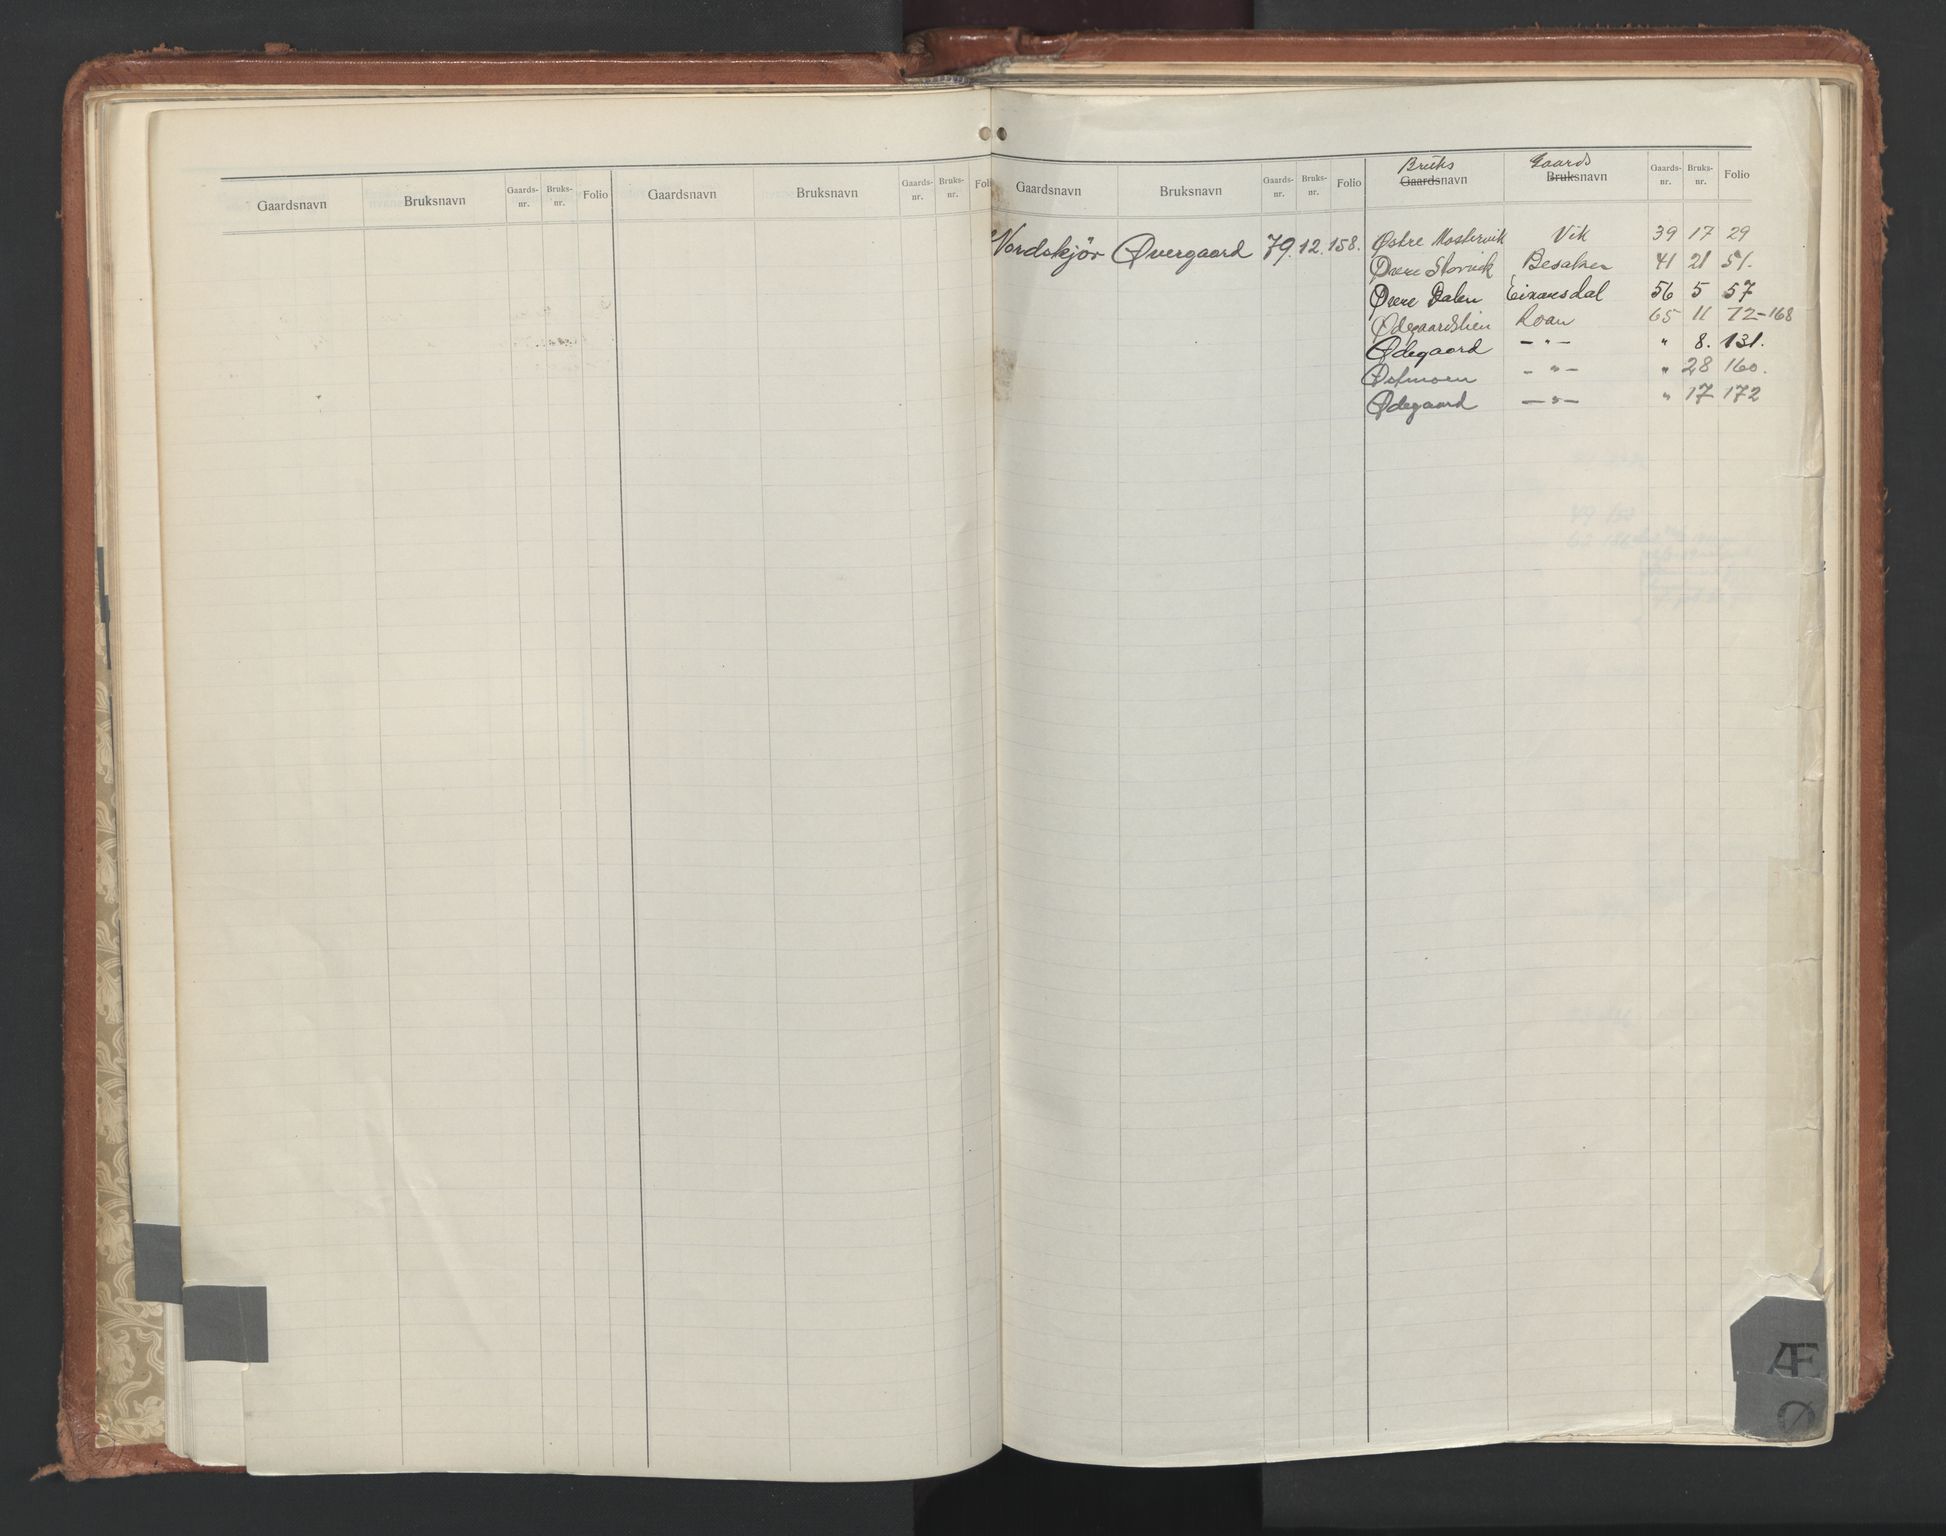 Gaardsnavn Bruksnavn Gaards-nr. Bruks-nr. Folio Gaardsnavn Bruksnavn Gaards-nr. Bruks-nr. Foli
Gaardsnavn Bruksnavn Gaards-nr. Bruks-nr. Folio
Nordskjør Øvergaard 79. 12. 158.
Bruks Gaards
Gaardsnavn Bruksnavn Gaards-nr. Bruks-nr. Folio
Østre Mostervik Vik 39 17 29
Øvre Storvik Besaker 41 21 51.
Øvre Dalen Einarsdal 56 5 57
Ødegaardslien Roan 65 11 72-168
Ødegaard - " - " 8. 131.
Østmoen - " - " 28 160.
Ødegaard - " - " 17 172
Æ
Ø